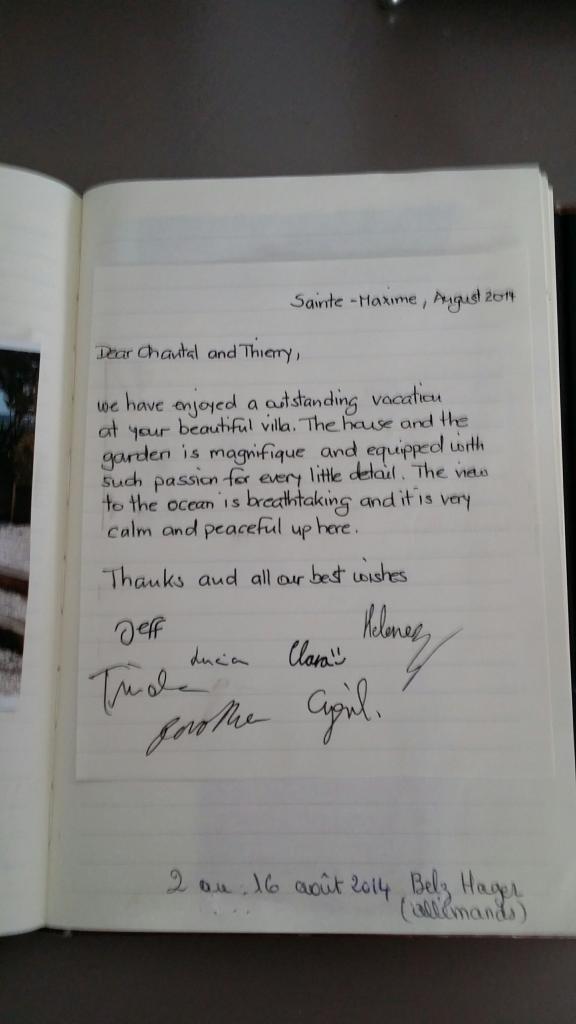 Sainte-Maxime, August 2014
Dear Chantal and Thierry,
we have enjoyed a outstanding vacation
at your beautiful villa. The house and the
garden is magnifique and equipped with
such passion for every little detail. The view
to the ocean is breathtaking and it is very
calm and peaceful up here.
Thanks and all our best wishes
Jeff
Helene
Lucia Clara
2 au 16 août 2014 Belz Hager
(allemands)